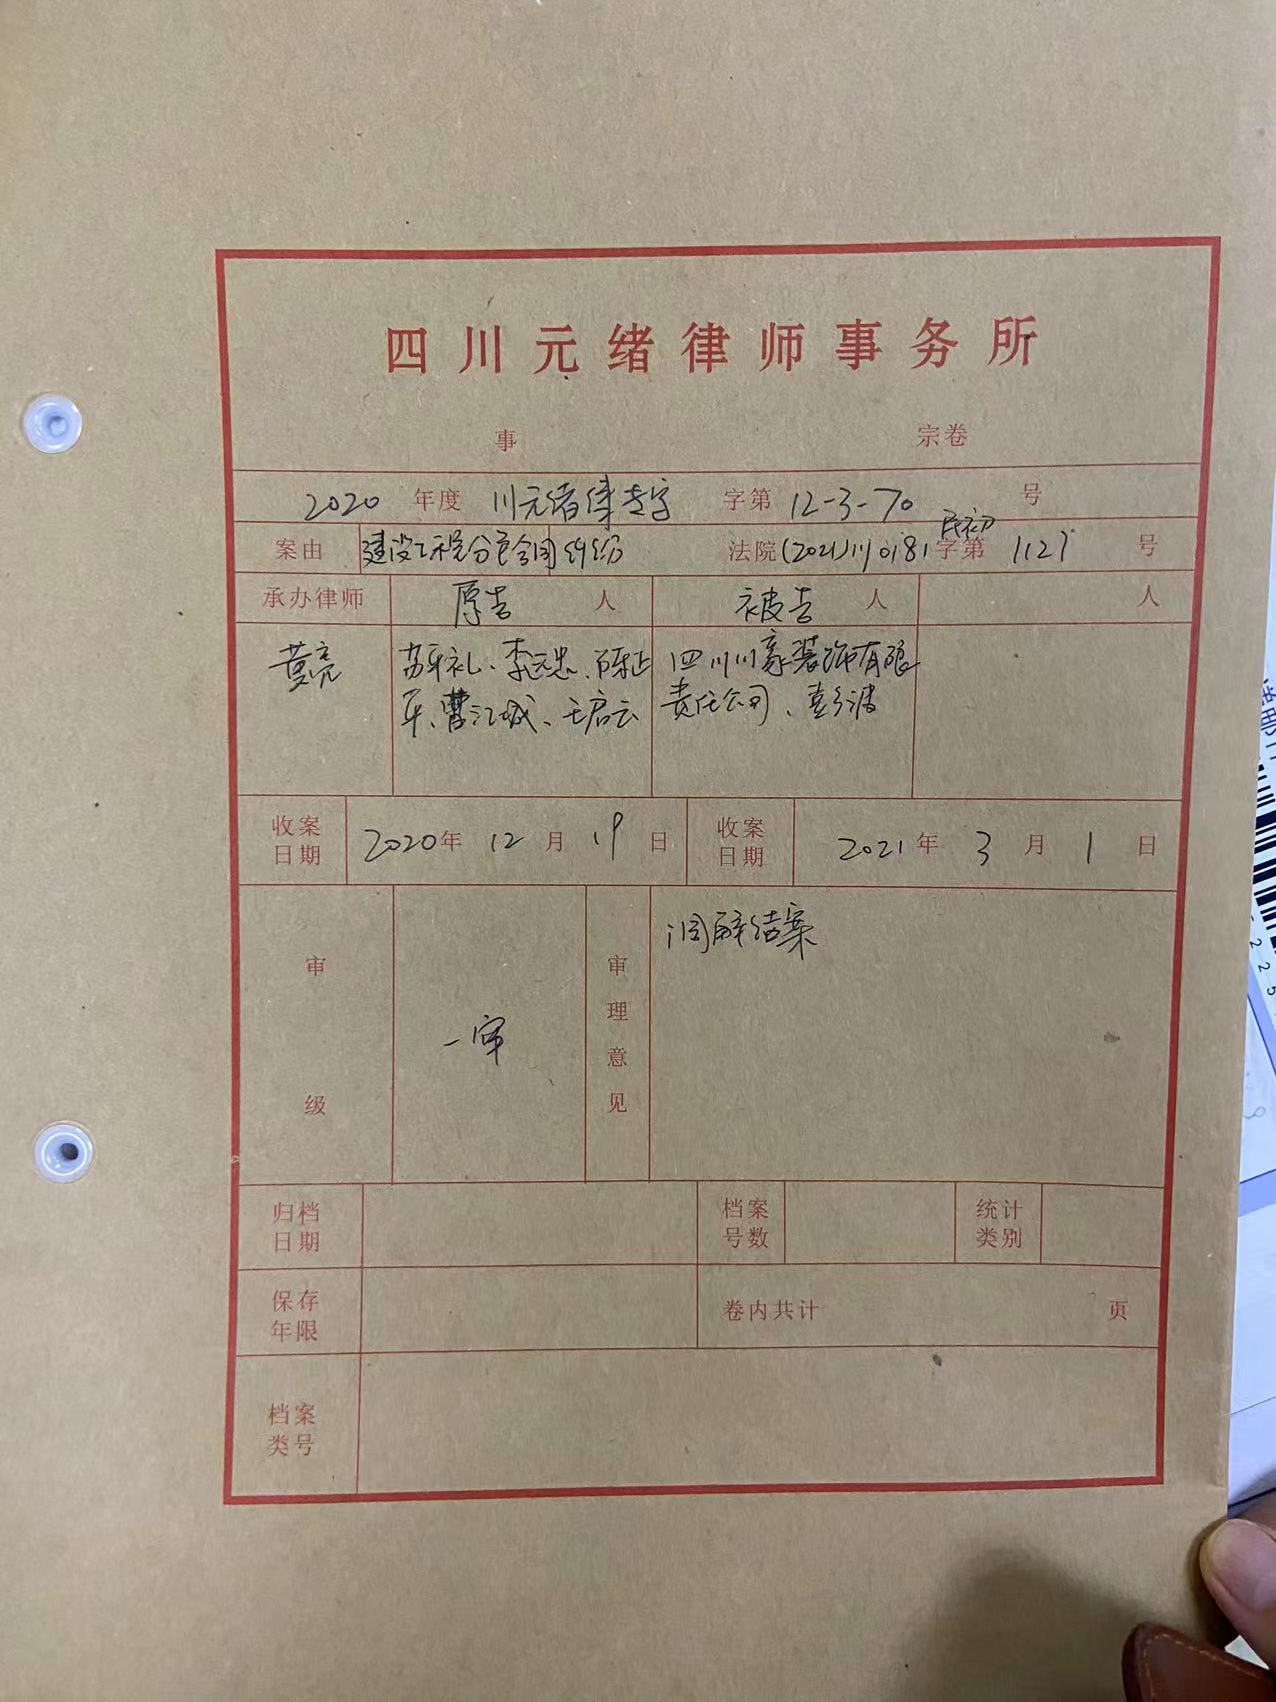 四川元绪律师事务所
事 宗卷
2020 年度 川元绪律专字 字第 12-3-70 号
案由 建设工程分包合同纠纷 法院 (2021)川0181 民初 字第 1127 号
承办律师 原告 人 被告 人 人
黄亮 苏平礼、李远忠、陈正 四川川豪装饰有限
军、曹江城、王启云 责任公司、彭波
收案 2020年 12 月 19 日 收案 2021 年 3 月 1 日
日期 日期
调解结案
审 审
理
一审 意
级 见
归档 档案 统计
日期 号数 类别
保存 卷内共计 页
年限
档案
类号
225